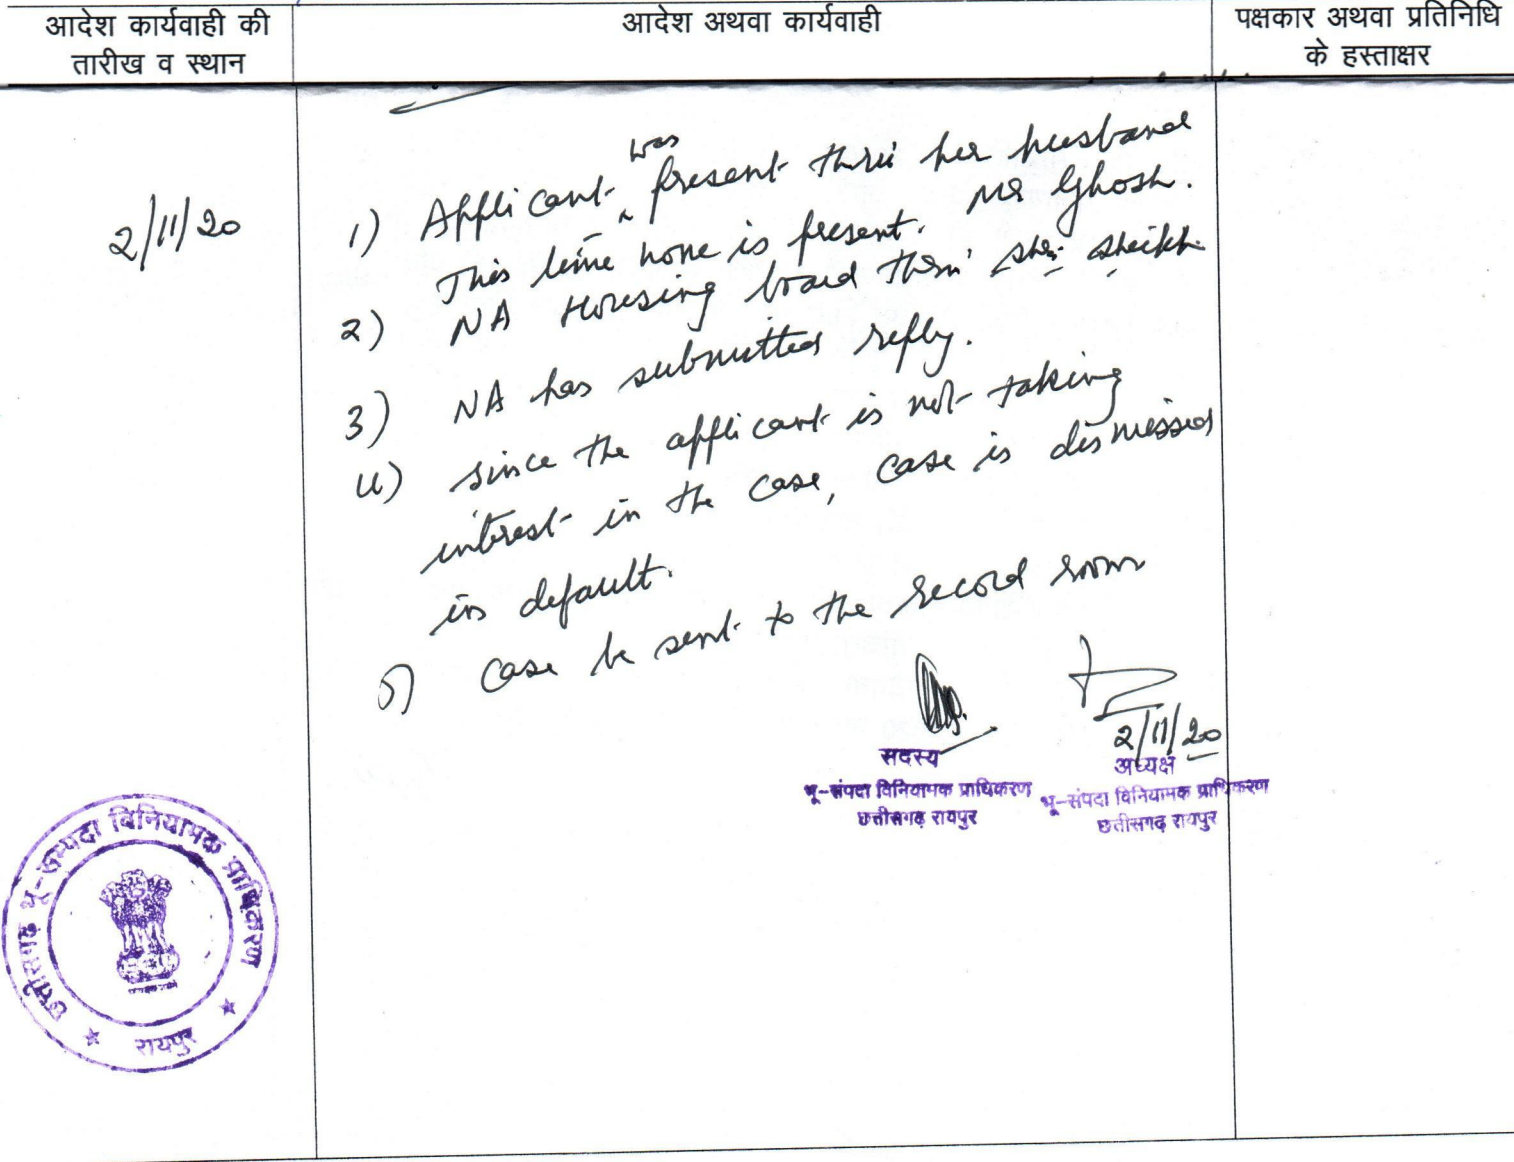 आदेश कार्यवाही की
तारीख व स्थान
आदेश अथवा कार्यवाही
पक्षकार अथवा प्रतिनिधि
के हस्ताक्षर
2/11/20
1) Applicant was present thru her husband
Mr Ghosh.
This time none is present.
2) NA Housing board thru' shri sheikh
3) NA has submitted reply.
4) since the applicant is not taking
interest in the case, case is dismissed
in default.
5) case be sent to the record room
2/11/20
सदस्य
भू-संपदा विनियामक प्राधिकरण
छत्तीसगढ़ रायपुर
अध्यक्ष
भू-संपदा विनियामक प्राधिकरण
छत्तीसगढ़ रायपुर
छत्तीसगढ़ भू-सम्पदा विनियामक प्राधिकरण
रायपुर